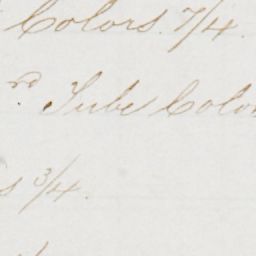 Colors 7/4.
rd Tube Colo
s 3/4.